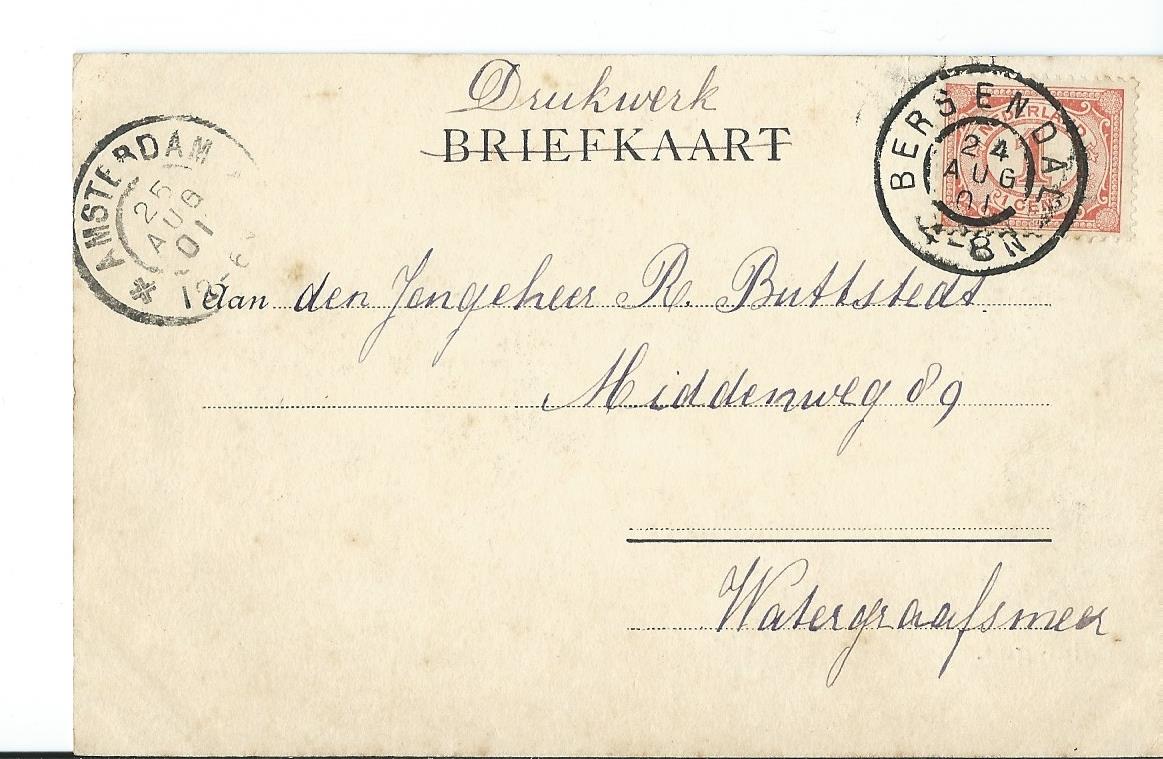 Drukwerk
BRIEFKAART
AMSTERDAM
25
AUG
01
BERGENDAL
24
AUG
01
8 N
NEDERLAND
1 CENT
Aan den Jongeheer R. Buttstedt
Middenweg 89
Watergraafsmeer